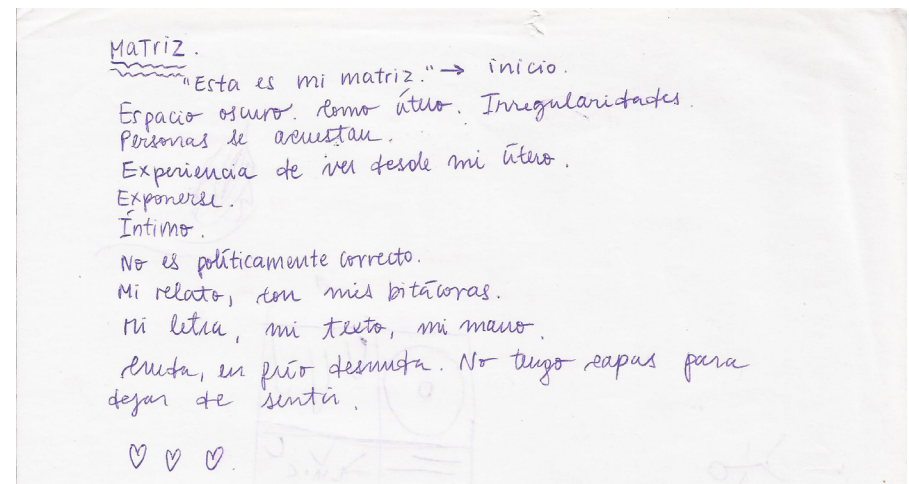 Matriz.
"Esta es mi matriz." → inicio.
Espacio oscuro. Como útero. Irregularidades.
Personas se acuestan.
Experiencia de ver desde mi útero.
Exponerse.
Íntimo.
No es políticamente correcto.
Mi relato, con mis bitácoras.
Mi letra, mi texto, mi mano.
Cruda, en frío desnuda. No tengo capas para
dejar de sentir.
♡ ♡ ♡.